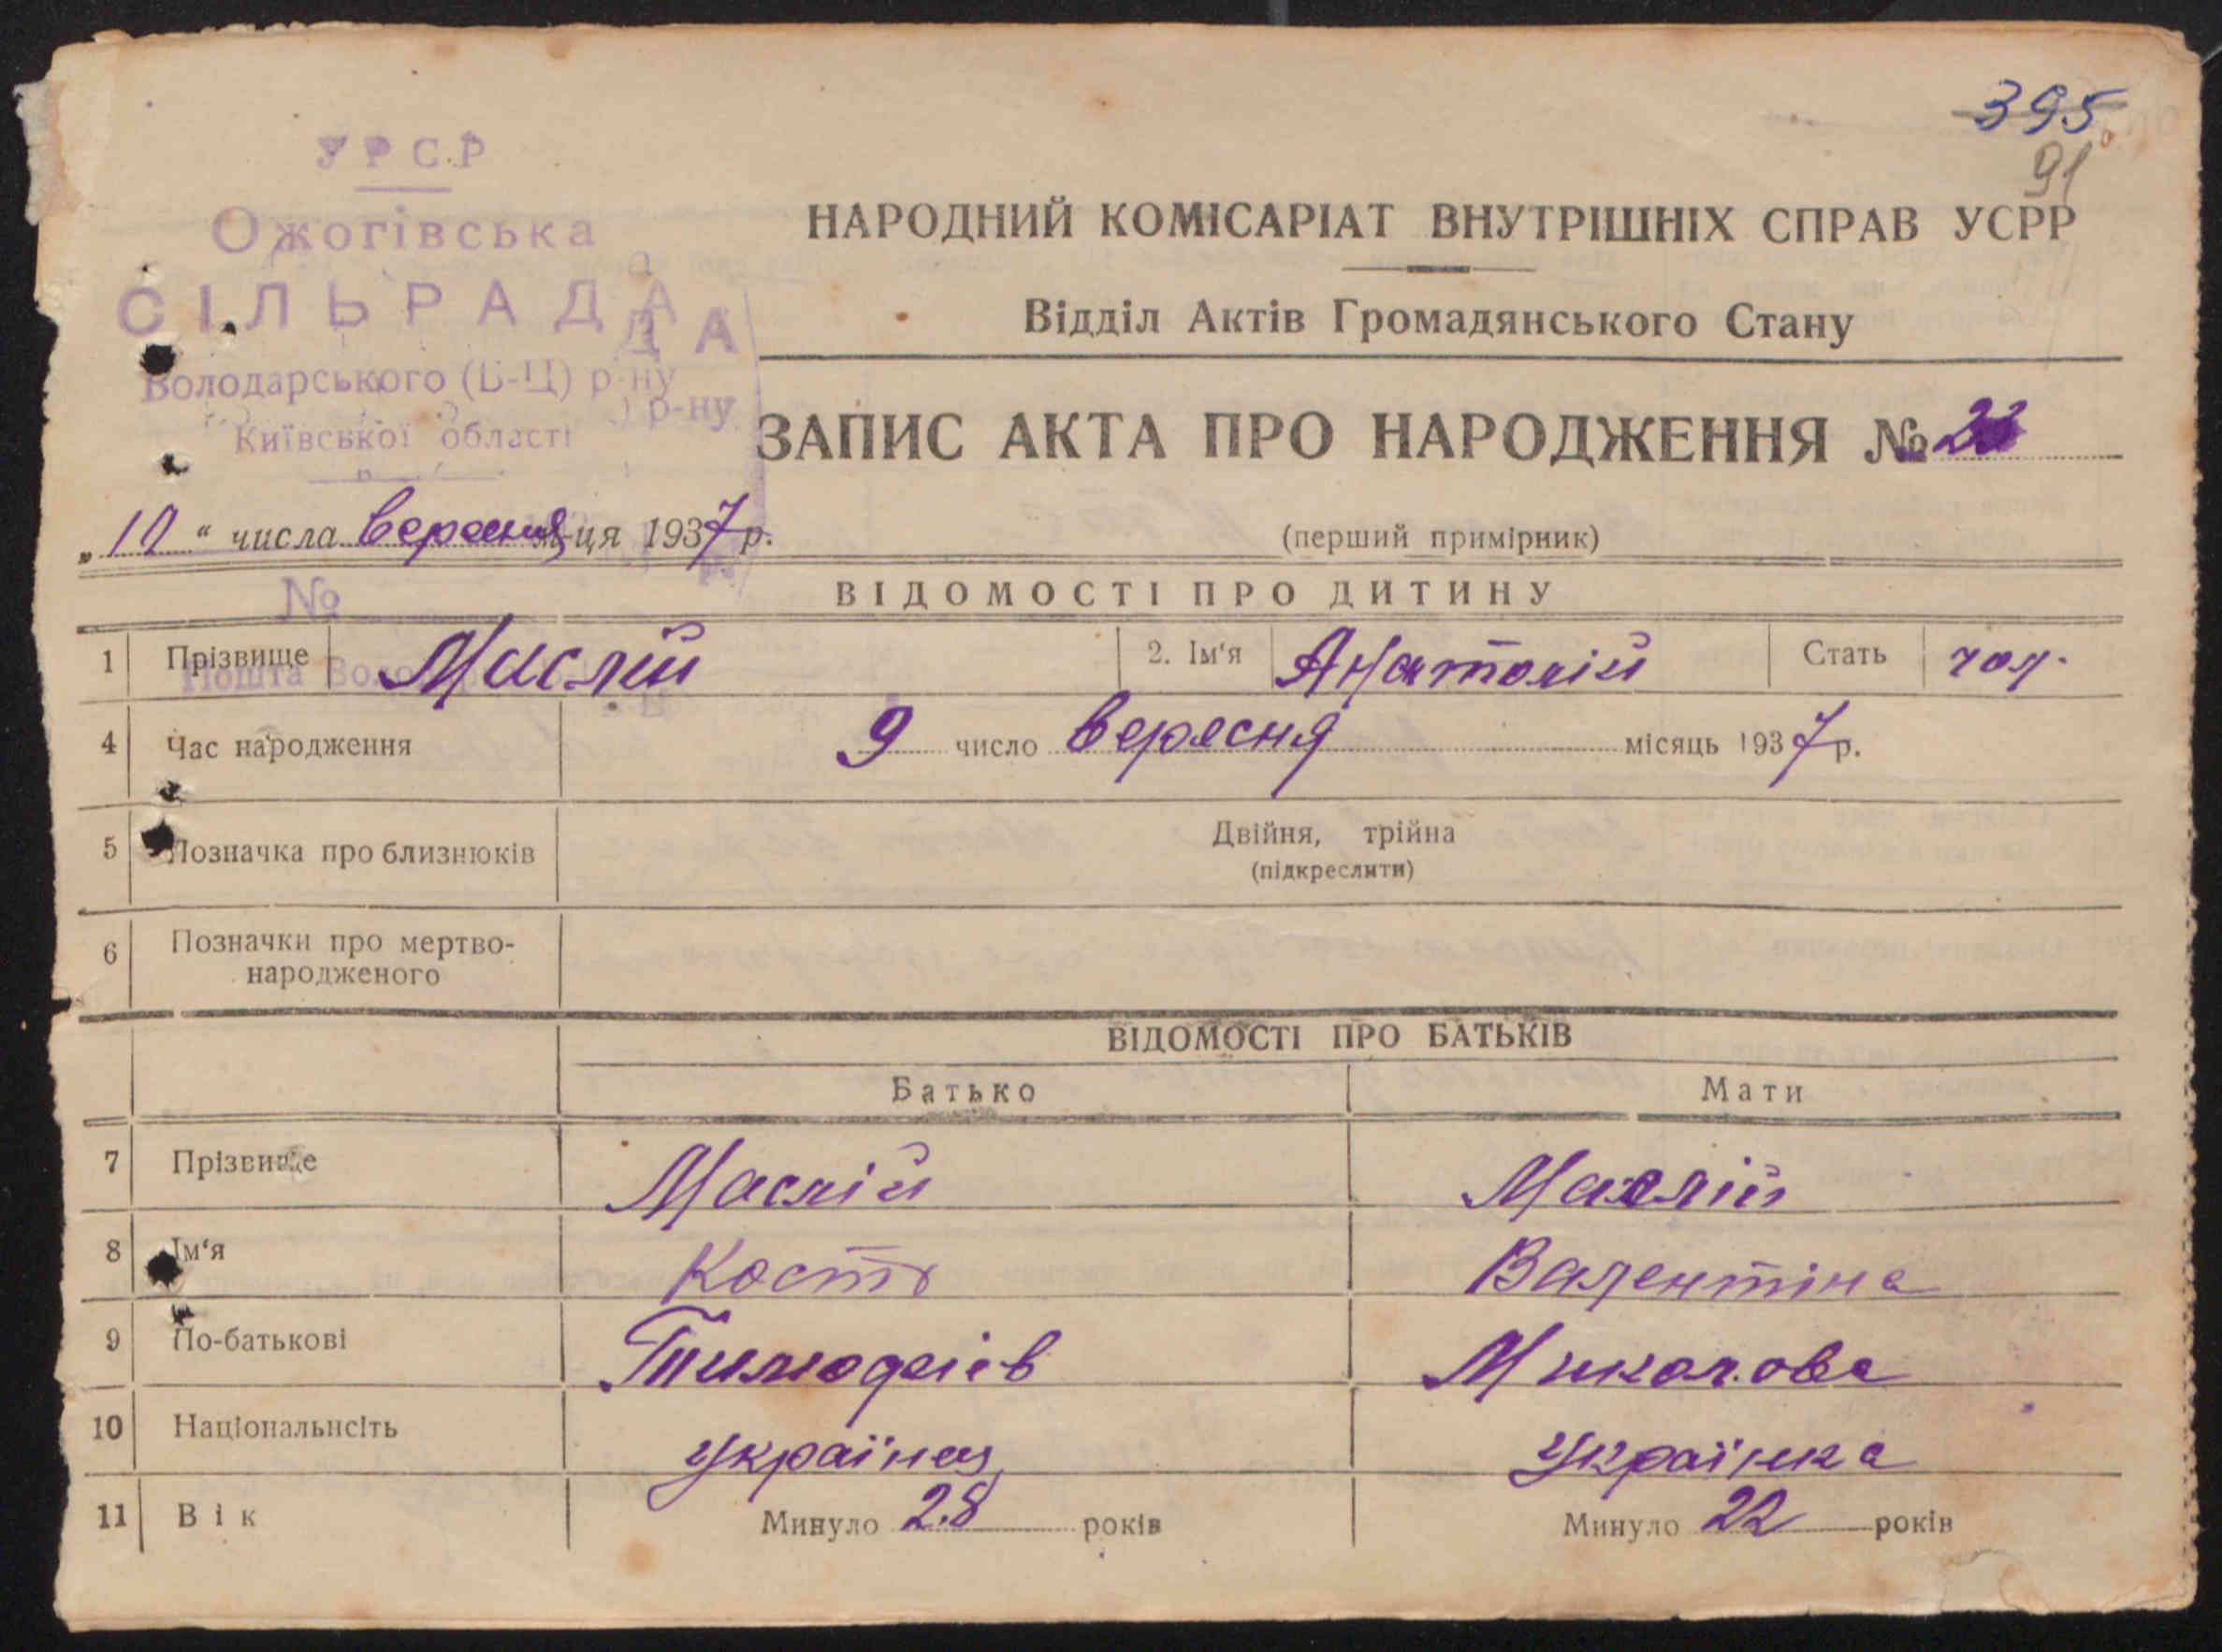 395
91
УРСР
Ожогівська
СІЛЬРАДА
ДА
Володарського (Б-Ц) р-ну
р-ну
Київської області
НАРОДНИЙ КОМІСАРІАТ ВНУТРІШНІХ СПРАВ УСРР
Відділ Актів Громадянського Стану
ЗАПИС АКТА ПРО НАРОДЖЕННЯ №
„ “ числа вересня м-ця 1937 р.
(перший примірник)
№
ВІДОМОСТІ ПРО ДИТИНУ
1 Прізвище Маслій 2. Ім‘я Анатолій Стать чол.
Пошта
4 Час народження 9 число вересня місяць 1937 р.
5 Позначка про близнюків Двійня, трійна
(підкреслити)
6 Позначки про мертво-
народженого
ВІДОМОСТІ ПРО БАТЬКІВ
Батько Мати
7 Прізвище Маслій Маслій
8 Ім‘я Кость Валентіна
9 По-батькові Миколова
10 Національність українець Українка
11 Вік Минуло 28 років Минуло 22 років